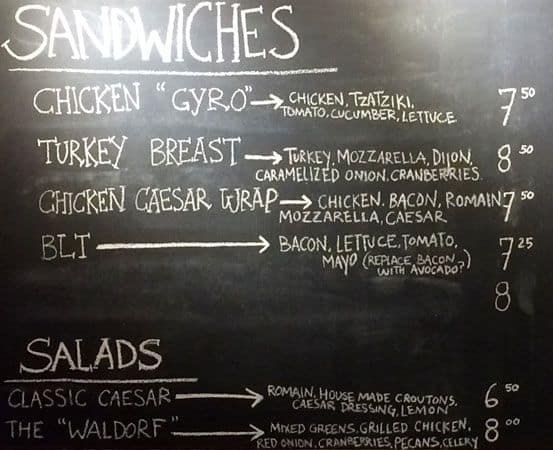 SANDWICHES
CHICKEN "GYRO" → CHICKEN, TZATZIKI, 7 50
TOMATO, CUCUMBER, LETTUCE
TURKEY BREAST → TURKEY, MOZZARELLA, DIJON, 8 50
CARAMELIZED ONION. CRANBERRIES.
CHICKEN CAESAR WRAP → CHICKEN. BACON, ROMAIN 7 50
MOZZARELLA, CAESAR
BLT → BACON, LETTUCE, TOMATO, 7 25
MAYO (REPLACE BACON
WITH AVOCADO?)
8
SALADS
CLASSIC CAESAR → ROMAIN, HOUSE MADE CROUTONS, 6 50
CAESAR DRESSING, LEMON
THE "WALDORF" → MIXED GREENS, GRILLED CHICKEN, 8 00
RED ONION. CRANBERRIES, PECANS, CELERY